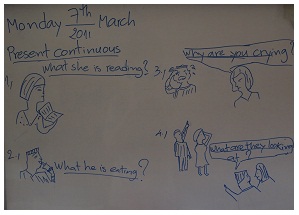 Monday 7th March
2011
Present continuous
1,
what she is reading?
2,
what he is eating?
3,
why are you crying?
4,
what are they looking
at